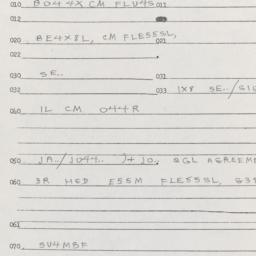 010 BO44X CM FLU4S 011
012
020 BE4X8L, CM FLE555L, 021
022
030 SE.. 031
032 033 1X8 SE../
040 1L CM 044R
050 JA../JO44.. J+ JO.. SGL AGREEME
060 3R MED E55M FLE555L,
061
070 SU4MBF